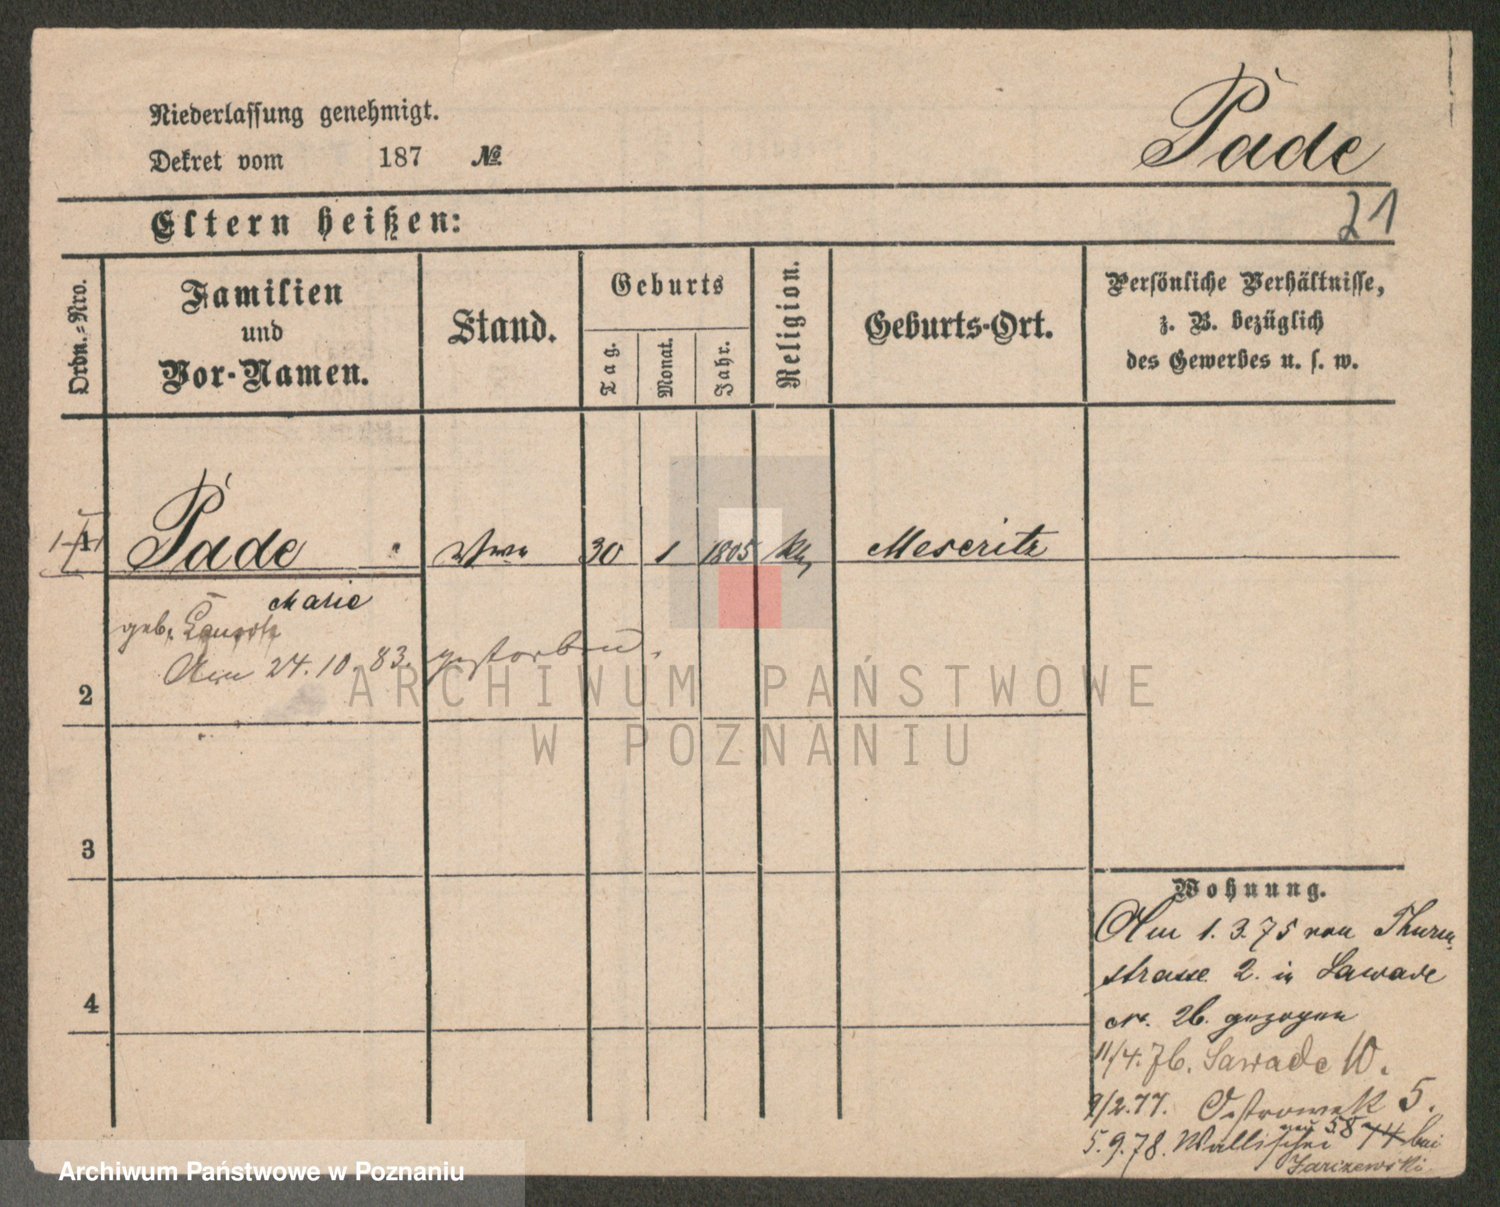 Niederlassung genehmigt.
Dekret vom 187 №
Pade
21
Eltern heißen:
Ordn.=Nro.
Familien
und
Vor-Namen.
Stand.
Geburts
Tag.
Monat.
Jahr.
Religion.
Geburts-Ort.
Persönliche Verhältnisse,
z. B. bezüglich
des Gewerbes u. s. w.
1
Pade Wwe 30 1 1805 kth Meseritz
Marie
geb.
Am 24.10.83. gestorben.
2
3
4
Wohnung.
Am 1.3.75 von Thurm-
strasse 2. in Sawade
Nr. 26. gezogen
11/4.76. Sawade 10.
9/2.77. Ostrowek 5.
5.9.78. Wallischei 74 bei
neu 58
Jarizewski
ARCHIWUM PAŃSTWOWE
W POZNANIU
Archiwum Państwowe w Poznaniu